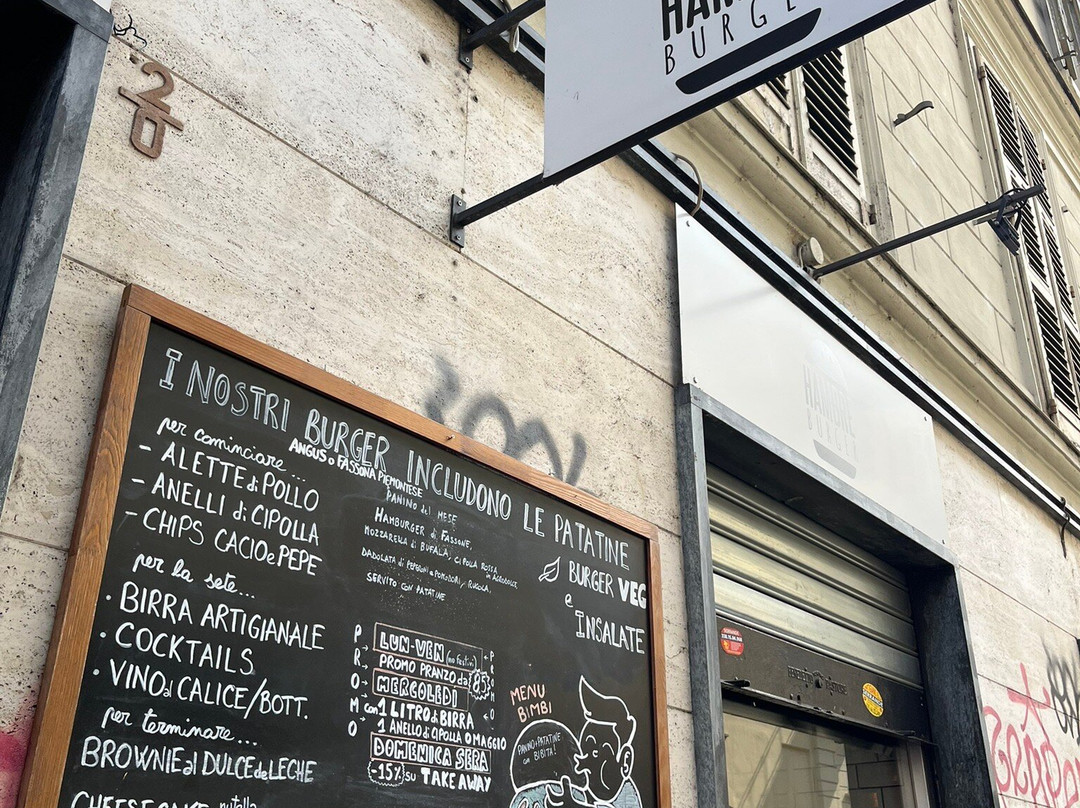 BURGE
20
I NOSTRI BURGER INCLUDONO LE PATATINE
ANGUS o FASSONA PIEMONTESE
per cominciare...
- ALETTE di POLLO
- ANELLI di CIPOLLA
- CHIPS CACIO e PEPE
per la sete...
· BIRRA ARTIGIANALE
· COCKTAILS
· VINO al CALICE/BOTT.
per terminare...
BROWNIE al DULCE de LECHE
CHEESECAKE nutella
PANINO del MESE
HAMBURGER di FASSONE,
MOZZARELLA di BUFALA, CIPOLLA ROSSA
in AGRODOLCE
DADOLATA di PEPERONI e POMODORI, RUCOLA,
SERVITO con PATATINE
BURGER VEG
e
INSALATE
PROMO
LUN-VEN (no festivi)
PROMO PRANZO da
MERCOLEDI
con 1 LITRO di BIRRA
1 ANELLO di CIPOLLA OMAGGIO
DOMENICA SERA
-15% SU TAKE AWAY
MENU
BIMBI
PANINO+PATATINE
con BIBITA!
BURGER